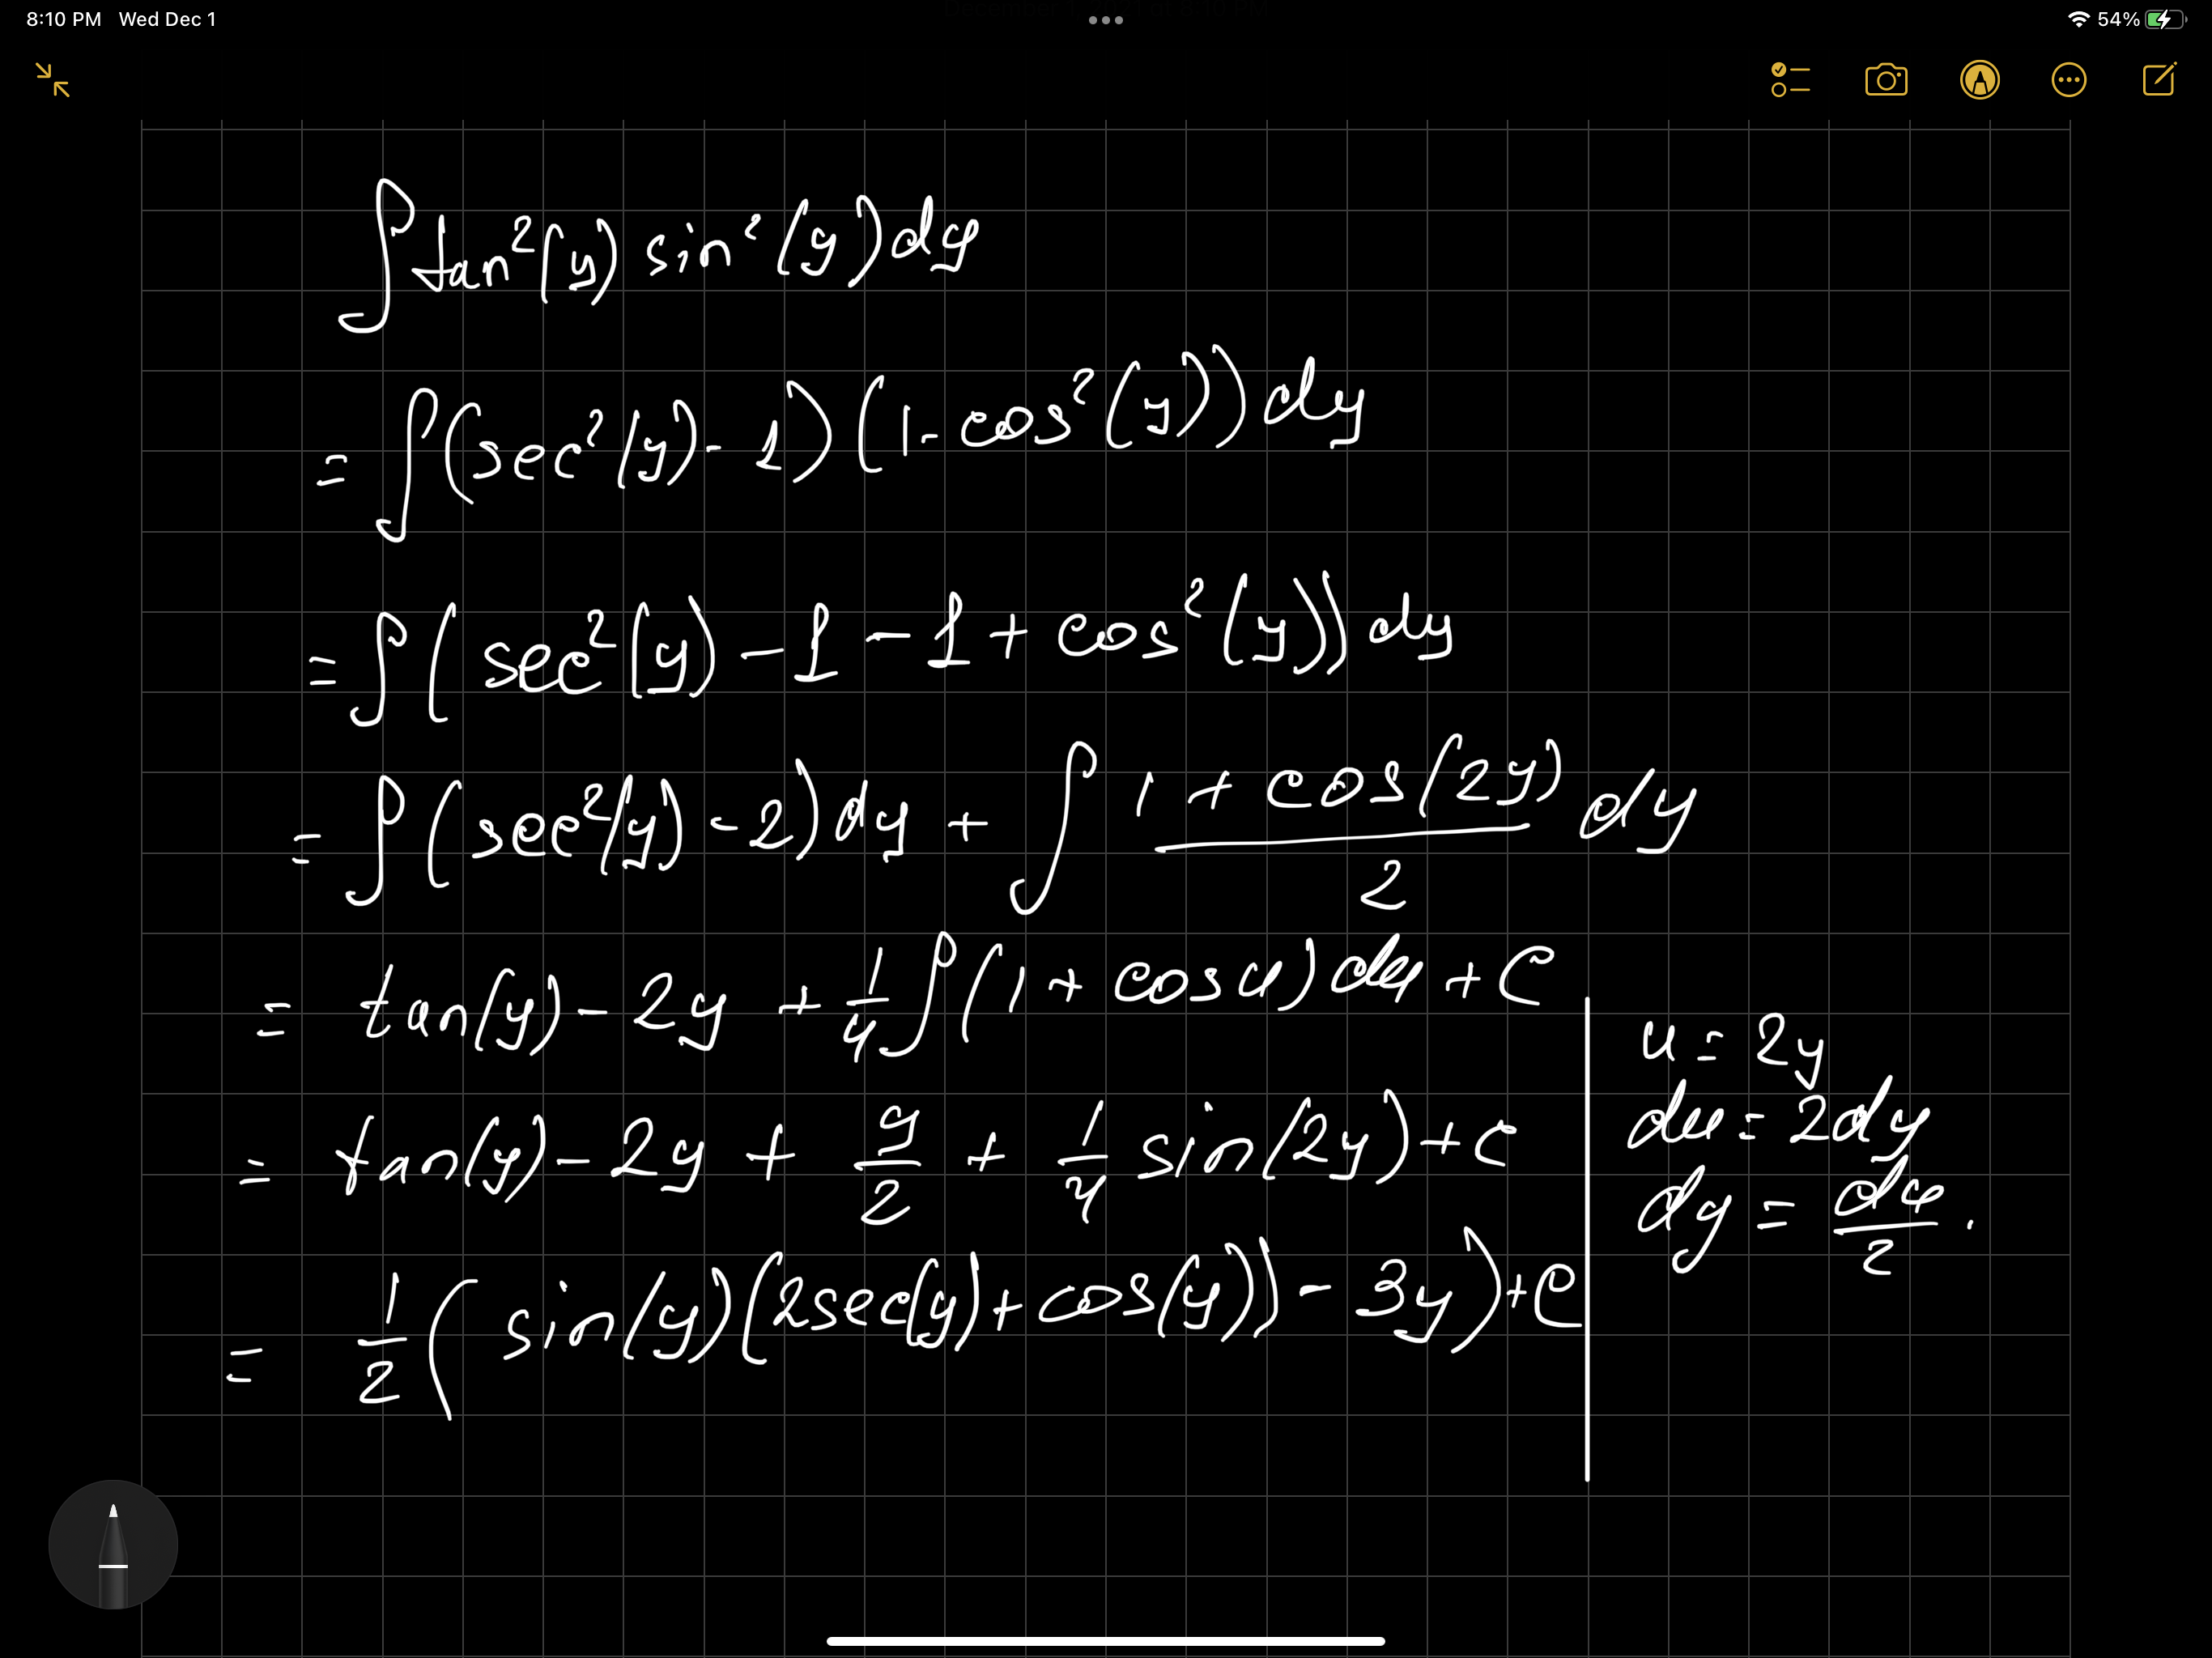 8:10 PM Wed Dec 1
54%
∫ tan²(y) sin²(y) dy
= ∫ (sec²(y) - 1) (1 - cos²(y)) dy
= ∫ ( sec²(y) - 1 - 1 + cos²(y)) dy
= ∫ ( sec²(y) - 2) dy + ∫ (1 + cos(2y))/2 dy
= tan(y) - 2y + 1/4 ∫ (1 + cos u) du + C
= tan(y) - 2y + y/2 + 1/4 sin(2y) + C
= 1/2 ( sin(y) (2sec(y) + cos(y)) - 3y) + C
u = 2y
du = 2dy
dy = du/2.